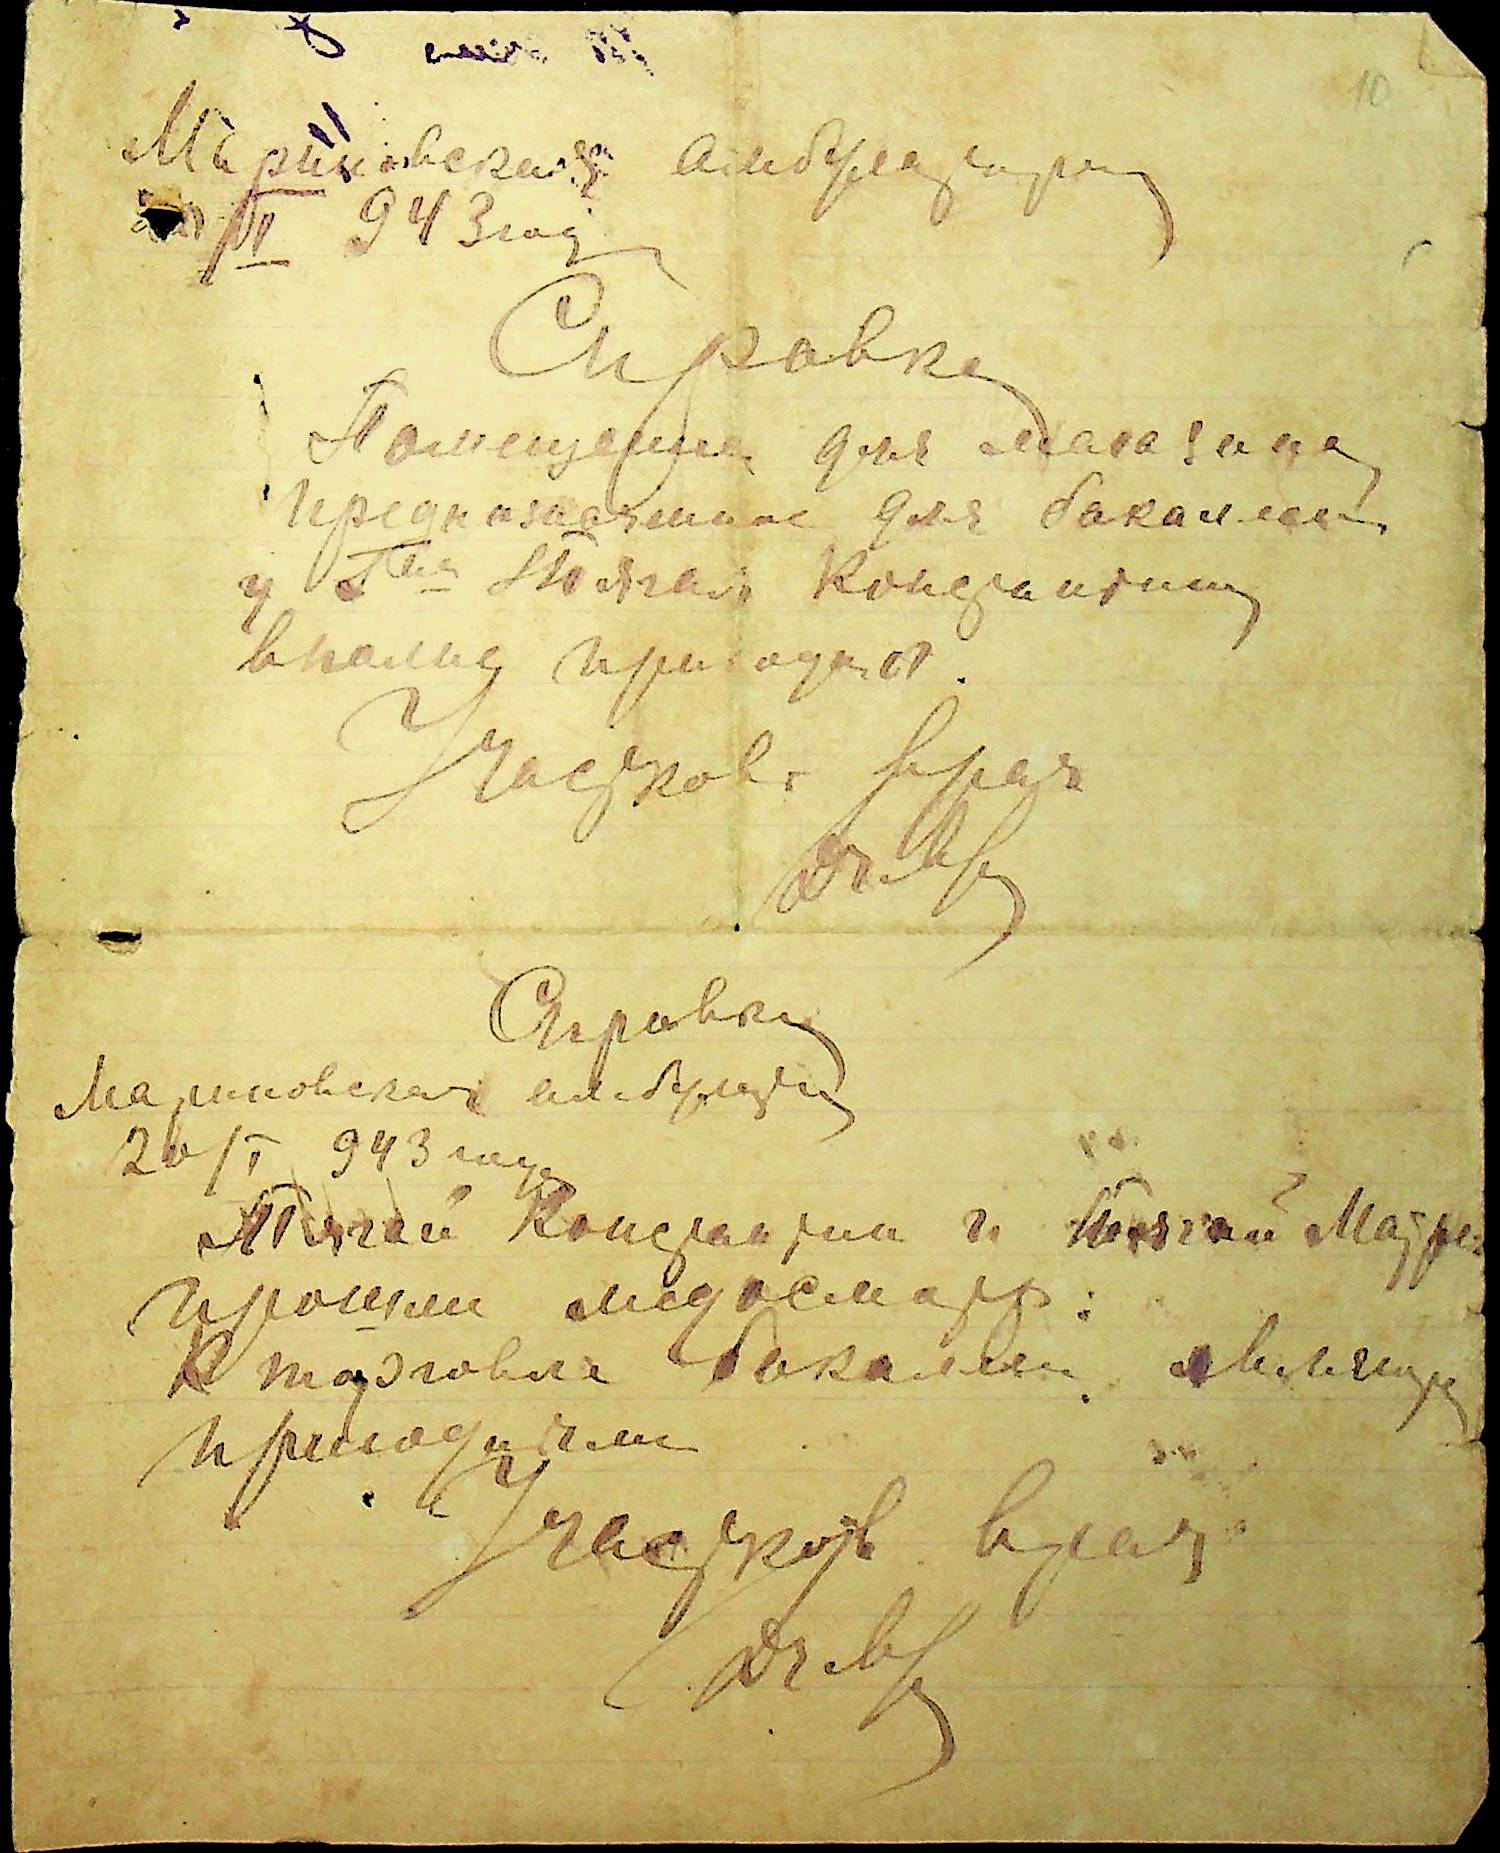 10
Мариновская амбулатория
943 год
Справка
Помещение для магазина
предназначенное для бакалеи
у Пятгай Константина
вполне пригодно.
Участков. врач
Справка
Мариновская амбулатория
20/I 943 года
Пятгай Константин и Пятгай Матрена
прошли медосмотр:
К торговле бакалеи являются
пригодными
Участков врач